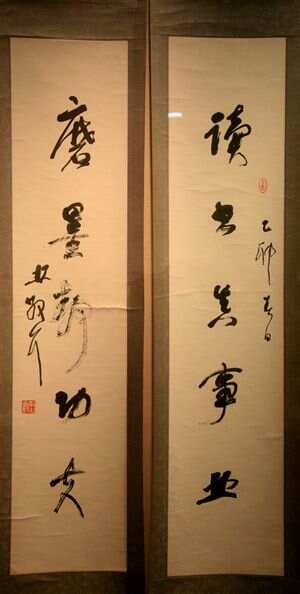 讀书真事业
乙卯春日
磨墨静功夫
林散耳